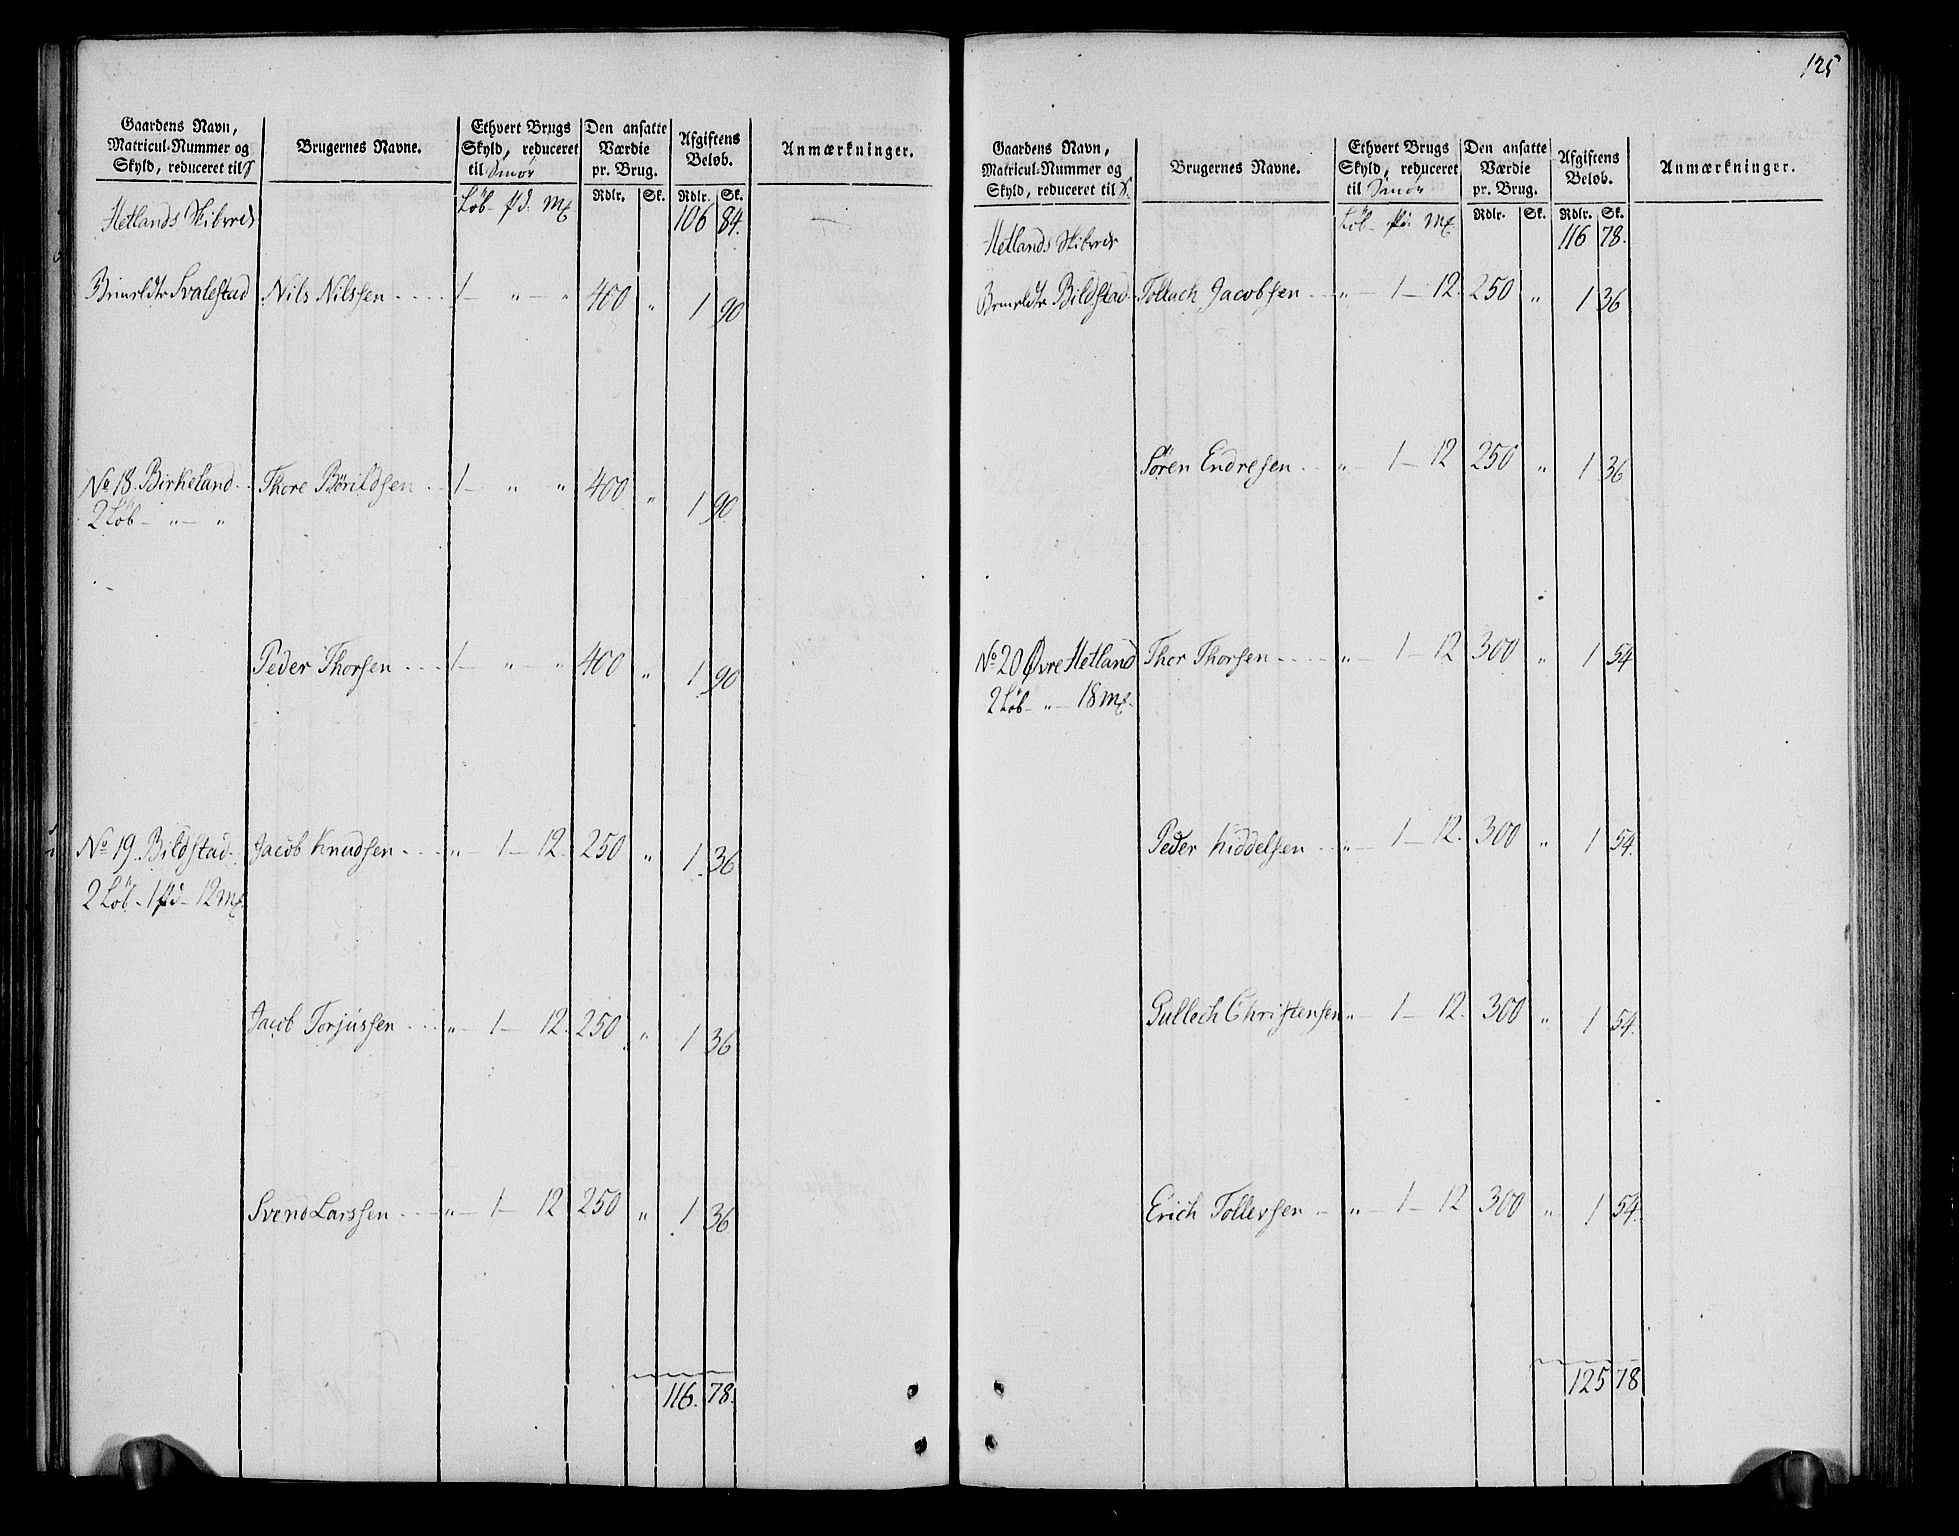 Gaardens Navn,
Matricul-Nummer og
Skyld, reduceret til
Brugernes Navne.
Ethvert Brugs
Skyld, reduceret
til Smør
Den ansatte
Værdie
pr. Brug.
Afgiftens
Beløb.
Anmærkninger.
Løb - pd. Mk
Rdlr. Sk. Rdlr. Sk.
Hetlands Skibrede 106 84.
Svalestad Nils Nilssen 1 - " - " 400 " 1 90
No 18. Birkeland Thore Børildsen 1 - " " 400 " 1 90
2 Løb - " - "
Peder Thorsen 1 - " - " 400 " 1 90
No 19. Bildstad Jacob Knudsen " 1 - 12. 250 " 1 36
2 Løb - 1 pd - 12 mk.
Jacob Torjussen " - 1 - 12. 250 " 1 36
Svend Larssen " - 1 - 12 250 " 1 36
116. 78.
125
Gaardens Navn,
Matricul-Nummer og
Skyld, reduceret til
Brugernes Navne.
Ethvert Brugs
Skyld, reduceret
til Smør
Den ansatte
Værdie
pr. Brug.
Afgiftens
Beløb.
Anmærkninger.
Løb - pd. Mk
Rdlr. Sk. Rdlr. Sk.
Hetlands Skibrede 116 78.
Bildstad Tollach Jacobsen " - 1 - 12. 250 " 1 36
Søren Endresen " - 1 - 12 250 " 1 36
No 20 Øvre Hetland Thor Thorsen " - 1 - 12 300 " 1 54
2 Løb - " - 18 mk.
Peder Kiddelsen " - 1 - 12. 300 " 1 54.
Gullech Christensen " - 1 - 12. 300 " 1 54.
Erich Tollevsen " - 1 - 12 300 " 1 54.
125 78